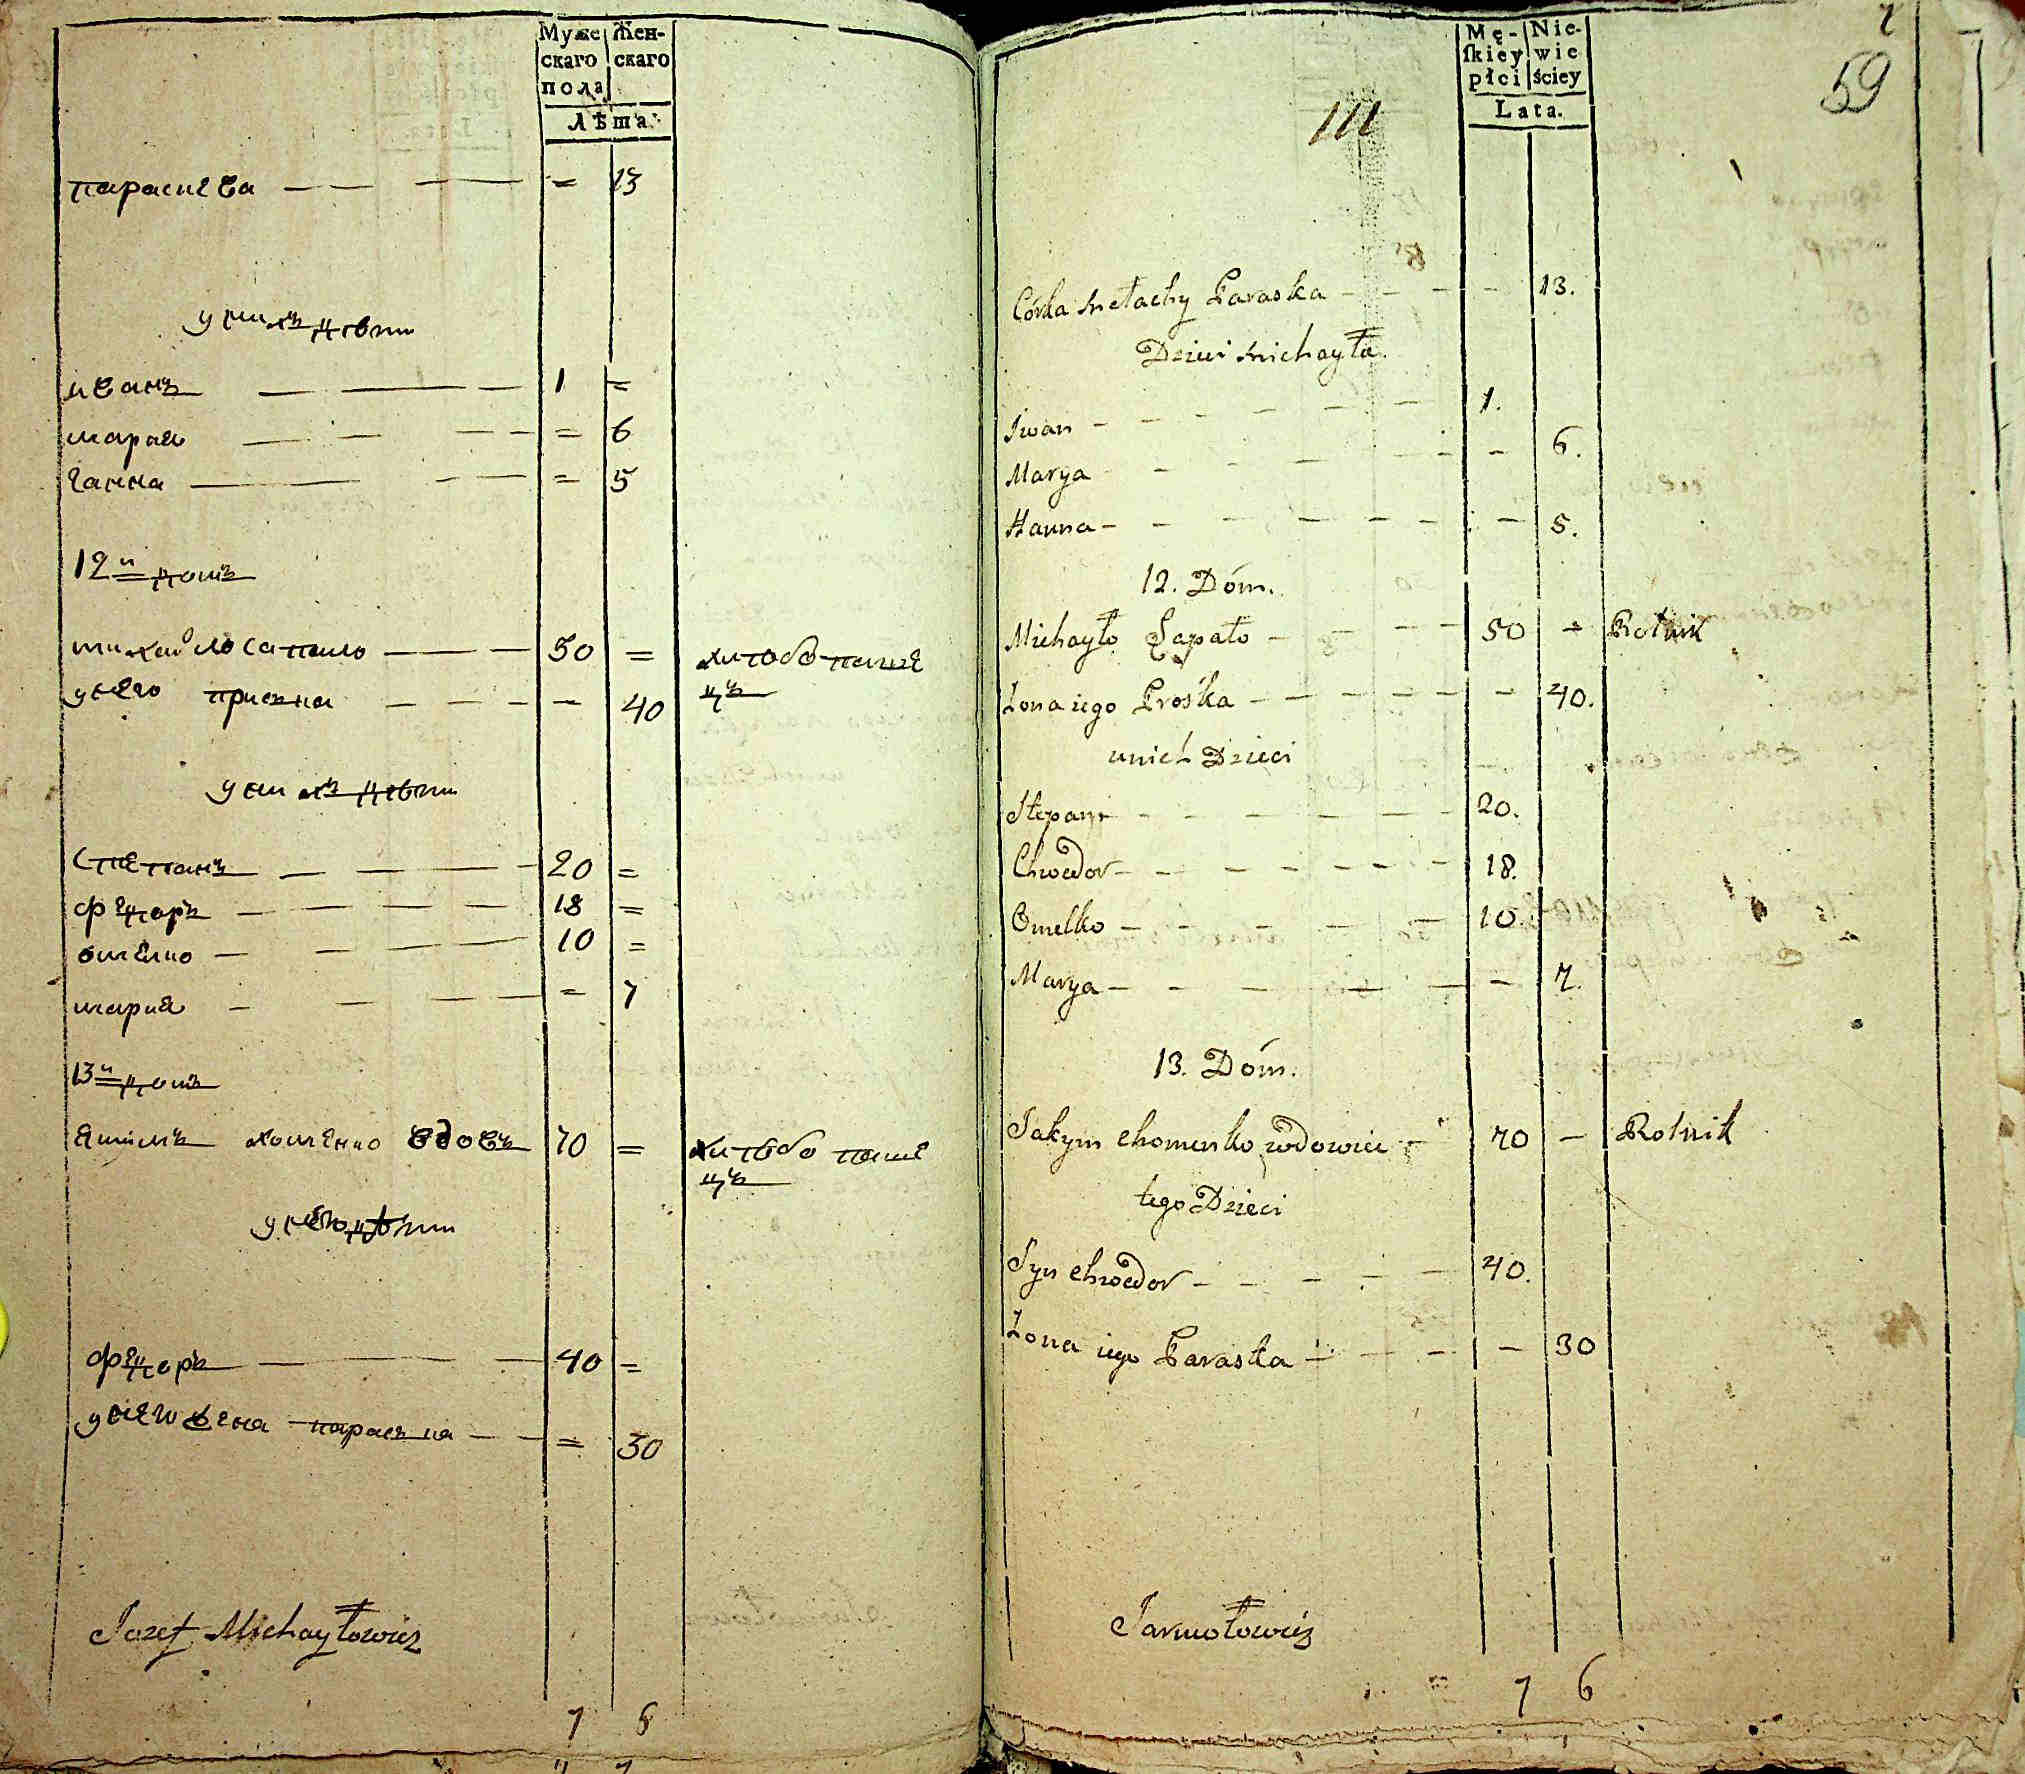 Муже Жен-
скаго скаго
пола
лѣта:
параскева — — — = 13
у них дѣти
иванъ — — — 1 =
мария — — — = 6
ганна — — — = 5
12й домъ
михайло сапало — — — 50 = хлѣбопаше
у него приська — — — — 40 цъ
у них дѣти
степанъ — — — 20 =
федоръ — — — 18 =
омелко — — — 10 =
мария — — — = 7
13й домъ
якимъ хоменко вдовъ 70 = хлѣбопаше
цъ
у него дѣти
федоръ — — — 40 =
у него жена параська — — = 30
Jozef Michayłowicz
7 6
2
59
Mę- Nie-
ſkiey wie
płci ściey
Lata.
111
Córka Metachy Paraska — — — 13.
Dzieci Michayła.
Iwan — — — 1.
Marya — — — 6.
Hanna — — — 5.
12. Dóm.
Michayło Sapało — — — 50 — Rolnik
Żona iego Prośka — — — 40.
unich Dzieci
Stepan — — — 20.
Chwedor — — — 18.
Omelko — — — 10.
Marya — — — 7.
13. Dóm.
Jakym Chomenko wdowiec — 70 — Rolnik
tego Dzieci
Syn Chwedor — — — 40.
Żona iego Paraska — — — 30
Jarmołowicz
7 6